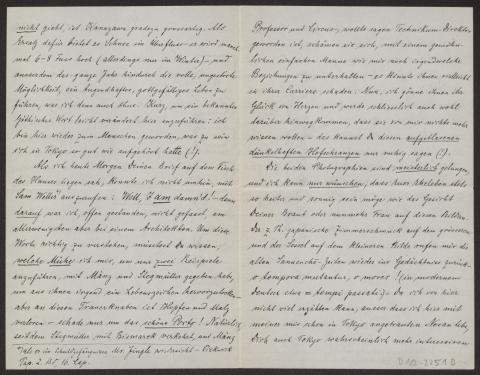 nicht giebt, ist Kanazawa geradezu grossartig. Als
Ersatz dafür bietet es Schnee im Überfluss – es wird manch-
mal 6–8 Fuss hoch (allerdings nur im Winter) – und
ausserdem das ganze Jahr hindurch die volle, ungestörte
Möglichkeit, ein tugendhaftes, gottgefälliges Leben zu
führen, was ich denn auch thue. Kurz, um ein bekanntes
Göthe'sches Wort leicht verändert hier anzuführen: ich
bin hier wieder zum Menschen geworden, was zu sein
ich in Tokyo so gut wie aufgehört hatte (!).
Als ich heute Morgen Deinen Brief auf dem Tisch
des Hauses liegen sah, konnte ich nicht umhin, mit
Sam Weller auszurufen: Well, I am damn'd! – denn
darauf war ich, offen gestanden, nicht gefasst, am
allerwenigsten aber bei einem Architekten. Um diese
Worte richtig zu verstehen, müsstest Du wissen,
welche Mühe ich mir, um nur zwei Beispiele
anzuführen, mit Mänz und Stegmüller gegeben habe,
um aus ihnen irgend ein Lebenszeichen hervorzulocken –
aber an diesen Trauerknaben ist Hopfen und Malz
verloren – schade nur um das schöne Porto! Natürlich,
seitdem Stegmüller mit Bismarck verkehrt, und Mänz
als er im Schuldgefängnisse Mr. Jingle wiedersieht – Pickwick
Pap. 2. 16. Cap.
Professor und Circus-, wollte sagen Technikum-Direktor
geworden ist, schämen sie sich, mit einem gewöhn-
lichen einfachen Manne wie mir auch irgendwelche
Beziehungen zu unterhalten – es könnte ihnen vielleicht
in ihrer Carriere schaden: Nun, ich gönne ihnen ihr
Glück von Herzen und werde schliesslich auch wohl
darüber hinwegkommen, dass sie von mir nichts mehr
wissen wollen – das kannst Du diesen aufgeblasenen
dünkelhaften Hofschranzen nur ruhig sagen (!).
Die beiden Photographien sind meisterlich gelungen,
und ich kann nur wünschen, dass Euer Eheleben stets
so heiter und sonnig sein möge wie das Gesicht
Deiner Braut oder nunmehr Frau auf diesen Bildern.
Das z. Th. japanische Zimmerschmuck auf dem grösseren
und der Sessel auf dem kleineren Bilde rufen mir die
alten Zeiten wieder ins Gedächtnis zurück –
o tempora mutantur, o mores! (in modernem
Deutsch etwa = tempi passati). – Da ich von hier
nicht viel erzählen kann, ausser dass ich hier mit
meiner mir schon in Tokyo angetrauten lebe,
Dich auch Tokyo wahrscheinlich mehr interessiren